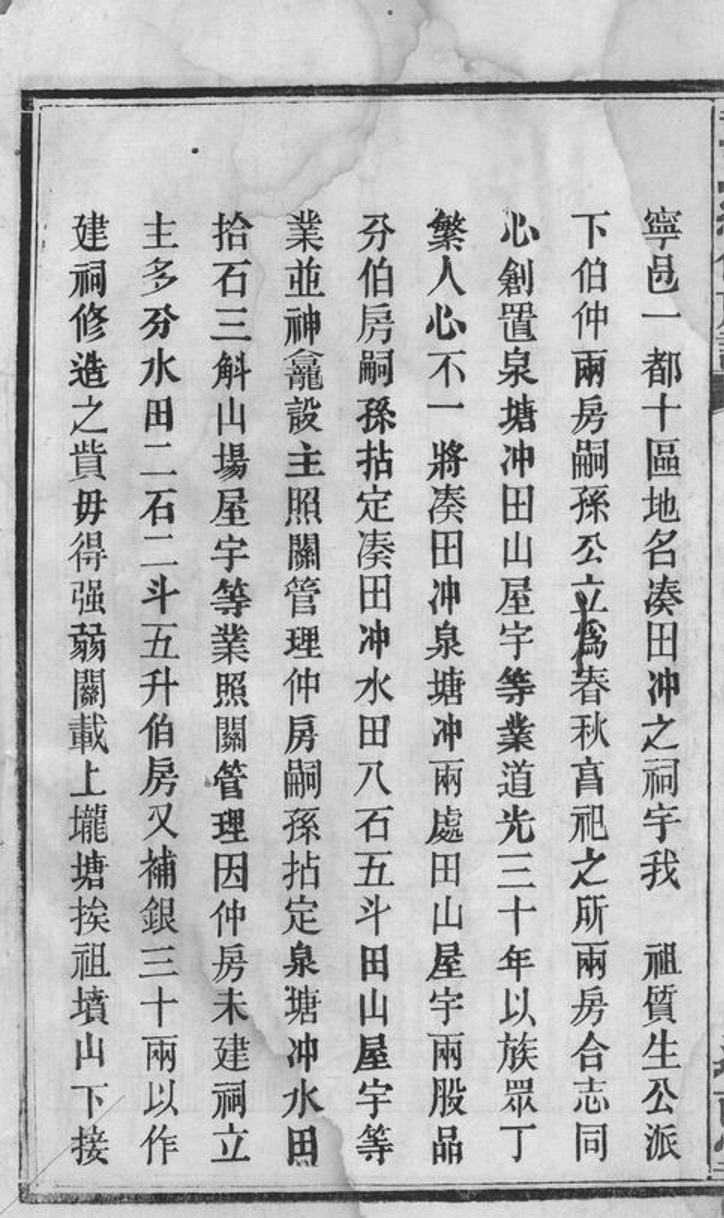 寧邑一都十區地名凑田冲之祠宇我　祖質生公派
下伯仲兩房嗣孫公立爲春秋亯祀之所兩房合志同
心創置泉塘冲田山屋宇等業道光三十年以族眾丁
繁人心不一將凑田冲泉塘冲兩處田山屋宇兩股品
分伯房嗣孫拈定凑田冲水田八石五斗田山屋宇等
業並神龕設主照關管理仲房嗣孫拈定泉塘冲水田
拾石三斛山場屋宇等業照關管理因仲房未建祠立
主多分水田二石二斗五升伯房又補銀三十兩以作
建祠修造之貲毋得强弱關載上壠塘挨祖墳山下接